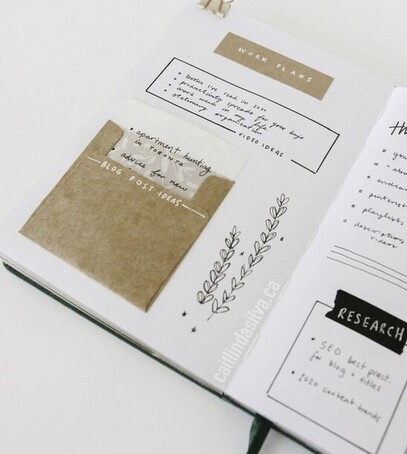 WORK PLANS
• books i've read in 2020
• productivity spreads for your bujo
• work week in my life
• stationery organization
VIDEO IDEAS
• apartment hunting
in TORONTO
• advice for new
BLOG POST IDEAS
caitlindasilva.ca
• playlists
• description
videos
RESEARCH
• SEO best pract.
for blog + titles
• 2020 content trends